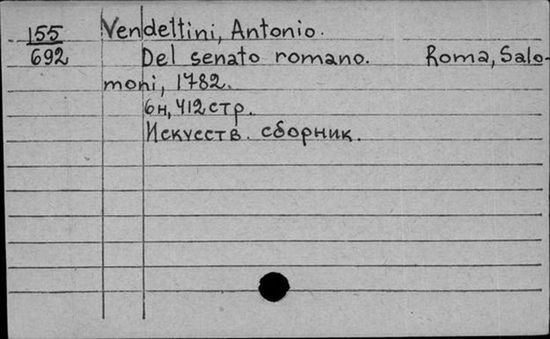 155 Vendettini, Antonio.
692 Del senato romano. Roma, Salo-
moni, 1782.
6н, 412 стр.
Искусств. сборник.